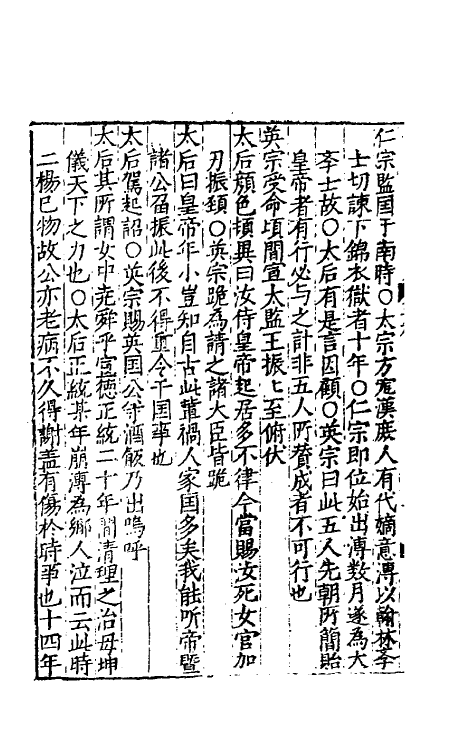 仁宗監国于南時○太宗方寵漢庶人有代嫡意溥以翰林李
士切諫下錦衣獄者十年○仁宗即位始出溥数月遂為大
李士故○太后有是言因顧○英宗曰此五人先朝所簡貽
皇帝者有行必与之計非五人所賛成者不可行也
英宗受命頃間宣太監王振〻至俯伏
太后顏色頓異曰汝侍皇帝起居多不律今當賜汝死女官加
刃振頸○英宗跪為請之諸大臣皆跪
太后曰皇帝年小豈知自古此輩禍人家国多矣我能听帝暨
諸公畱振此後不得重令干国事也
太后駕起詔○英宗賜英国公等酒飯乃出嗚呼
太后其所謂女中尭舜乎宣徳正統二十年間清理之治母坤
儀天下之力也○太后正統某年崩溥為鄉人泣而云此時
二楊已物故公亦老病不久得謝盖有傷於時事也十四年